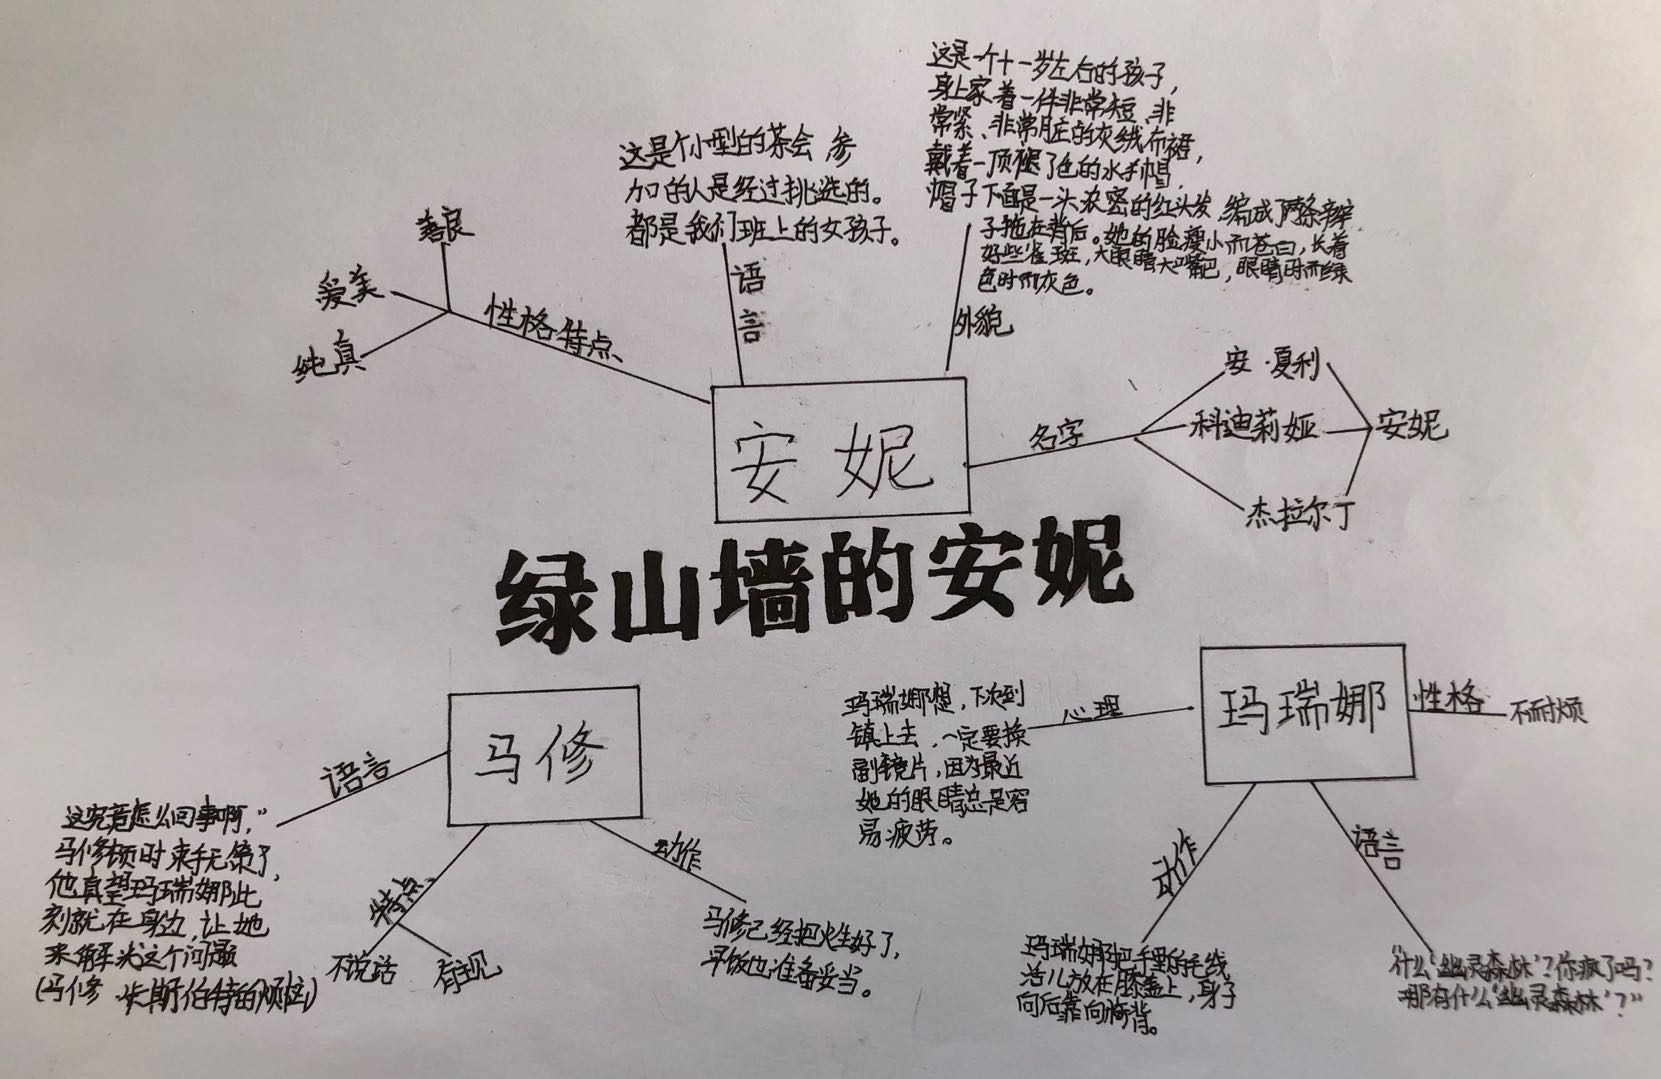 这是一个十一岁左右的孩子，
身上家着一件非常短、非
常紧、非常脏的灰绒布裙，
戴着一顶褪了色的水手帽，
帽子下面是一头浓密的红头发，编成了两条辫
子拖在背后。她的脸瘦小而苍白，长着
好些雀斑，大眼睛大嘴巴，眼睛时而绿
色时而灰色。
外貌
这是个小型的茶会，参
加的人是经过挑选的。
都是我们班上的女孩子。
语言
善良
爱美
纯真
性格特点
安妮
名字
安·夏利
科迪莉娅
杰拉尔丁
安妮
绿山墙的安妮
马修
语言
这究竟怎么回事啊，”
马修顿时束手无策了，
他真望玛瑞娜此
刻就在身边，让她
来解决这个问题
(马修·卡斯伯特的烦恼)
特点
不说话
有主见
动作
马修已经把火生好了，
早饭也准备妥当。
玛瑞娜
心理
玛瑞娜想，下次到
镇上去，一定要换
副镜片，因为最近
她的眼睛总是容
易疲劳。
性格
不耐烦
动作
玛瑞娜把手里的毛线
活儿放在膝盖上，身子
向后靠向椅背。
语言
“什么‘幽灵森林’？你疯了吗？
哪有什么‘幽灵森林’？”